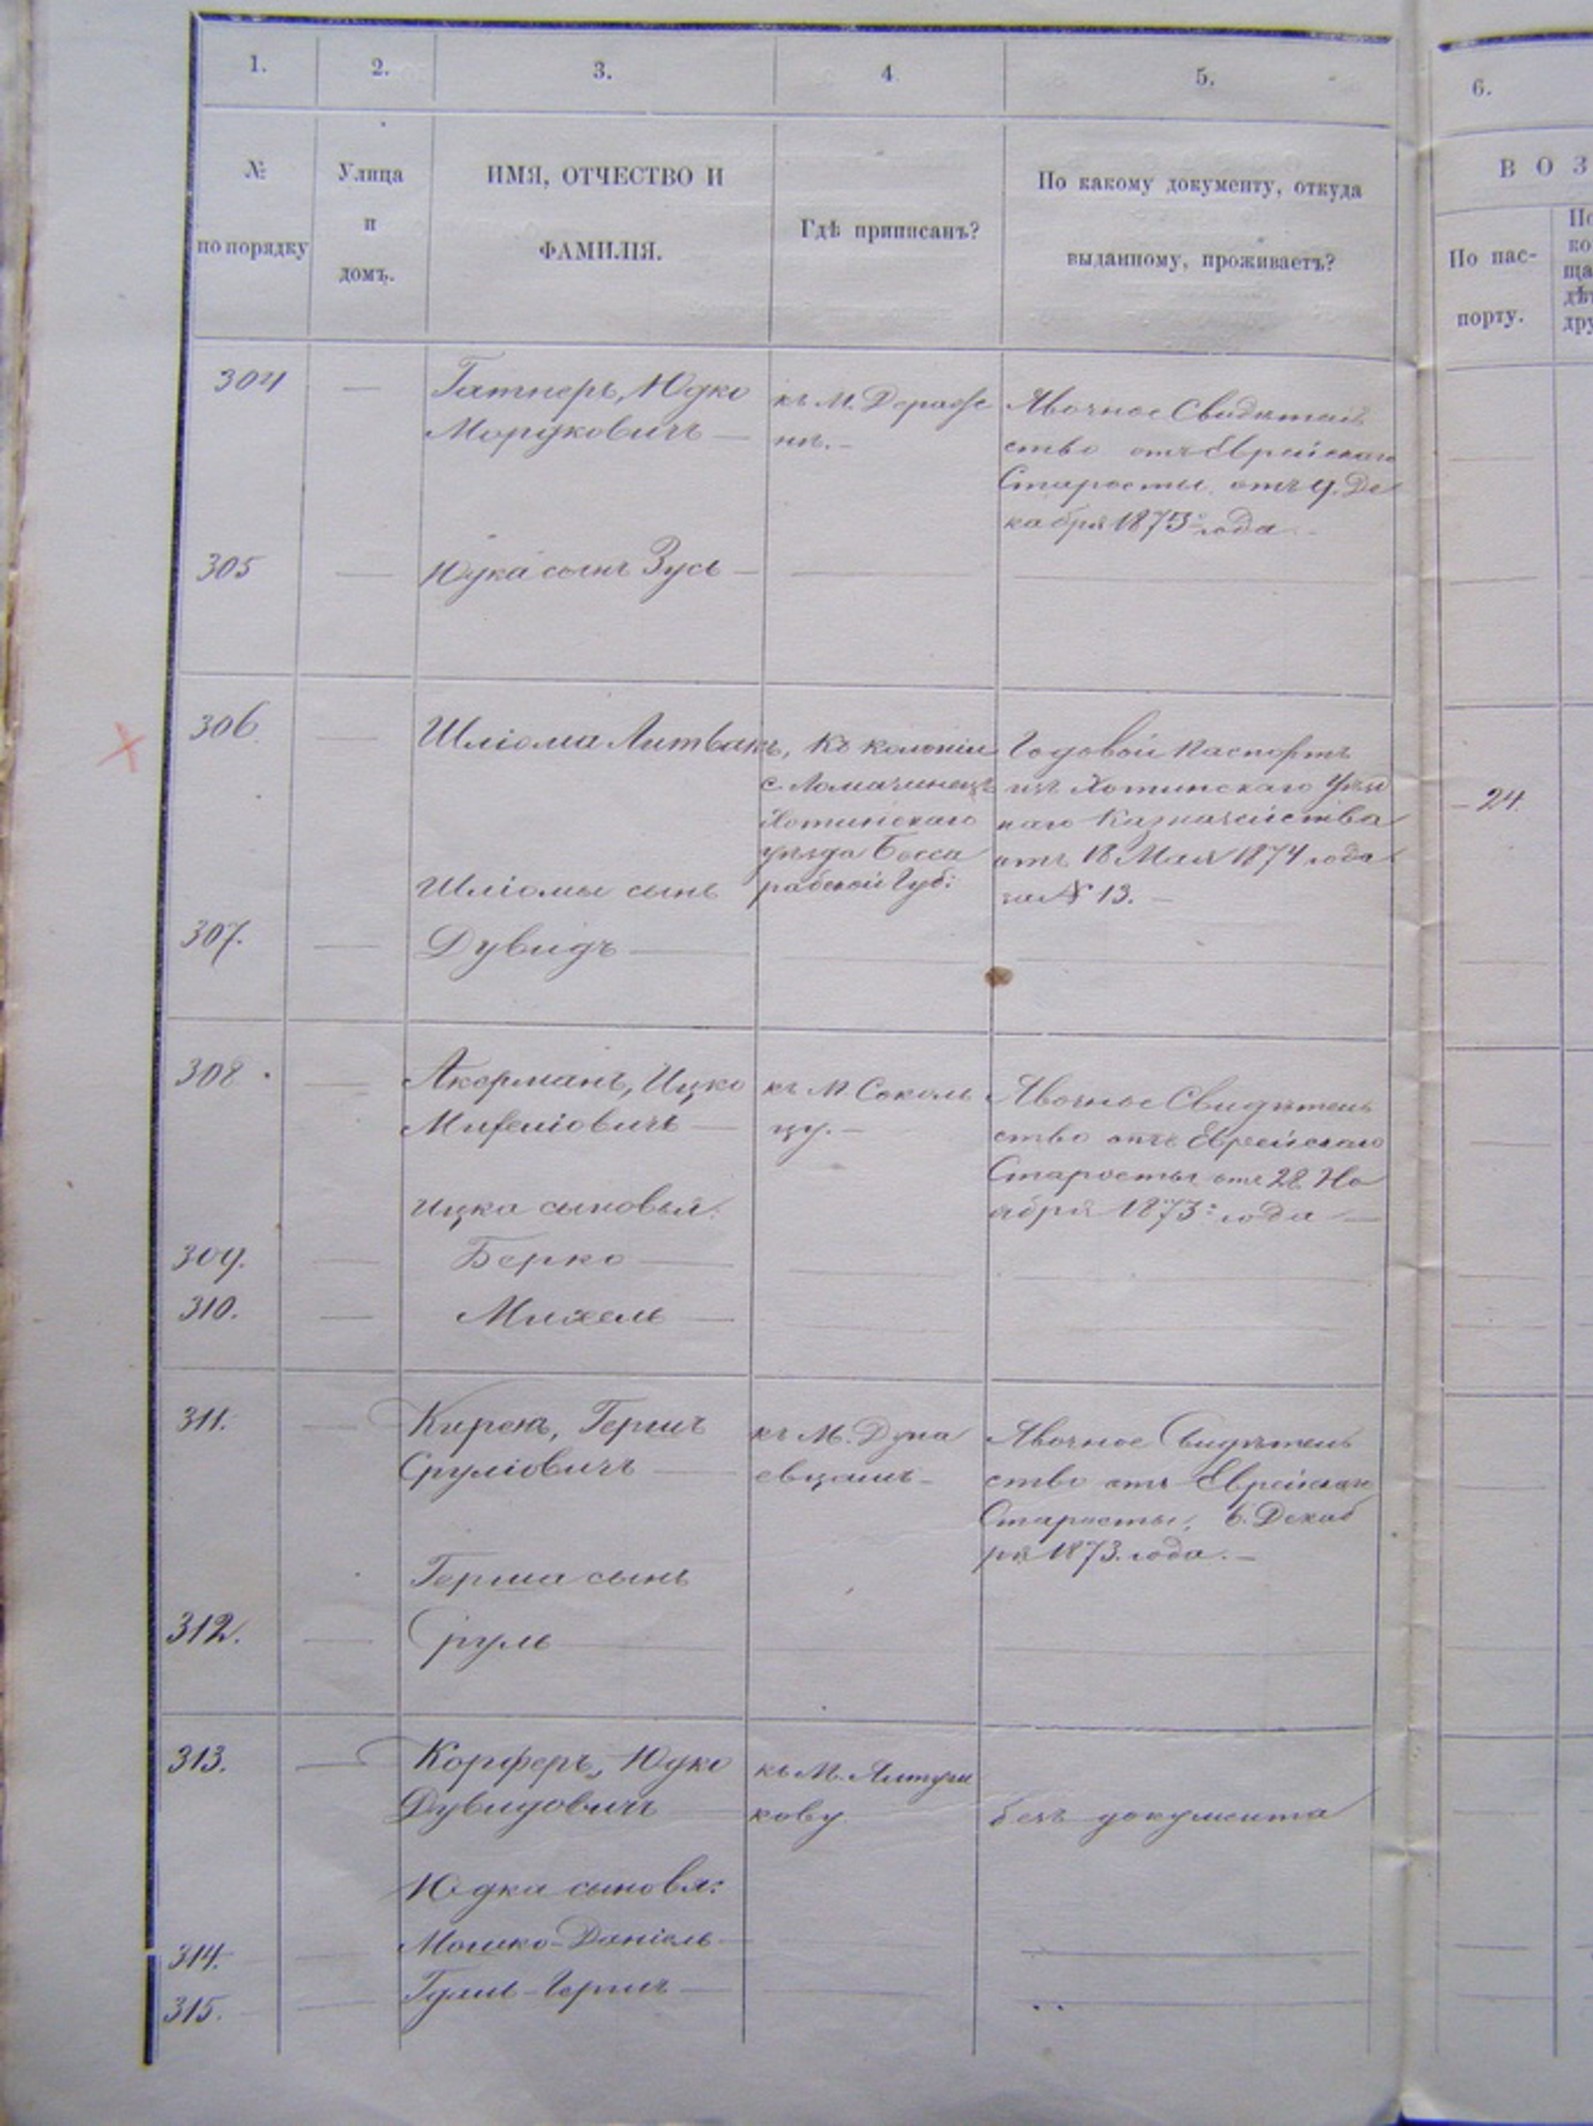 1. 2. 3. 4 5. 6.
№
по порядку
Улица
и
домъ.
ИМЯ, ОТЧЕСТВО И
ФАМИЛІЯ.
Гдѣ приписанъ?
По какому документу, откуда
выданному, проживаетъ?
В О З
По пас-
порту.
304
Юдко
Мордковичъ
къ М. Дераж
нѣ.
Явочное Свидѣтель
ство отъ Еврейскаго
Старосты отъ 9. Де
кабря 1873 года
305
Юдка сынъ Зусь
306
Шліома Литвакъ,
къ колоніи
с. Ломачинецъ
Хотинскаго
уѣзда Бесса
рабской Губ:
Годовой паспортъ
изъ Хотинскаго Уѣзд
наго Казначейства
отъ 18 Мая 1874 года
за № 13.
24
Шліомы сынъ
307.
Дувидъ
308
Акерманъ, Ицко
Михеліовичъ
къ М. Соколь
цу.
Явочное Свидѣтель
ство отъ Еврейскаго
Старосты отъ 28 Но
ября 1873: года
Ицка сыновья:
309.
Берко
310.
Михель
311.
Гершъ
Сруліовичъ
къ М. Дуна
евцамъ
Явочное Свидѣтель
ство отъ Еврейскаго
Старосты, 6. Декаб
ря 1873. года.
Герша сынъ
312.
Сруль
313.
Корферъ, Юдко
Дувидовичъ
къ М. Ялтуш
кову
безъ документа
Юдка сыновя:
314.
Мошко-Даніель
315.
Гершъ